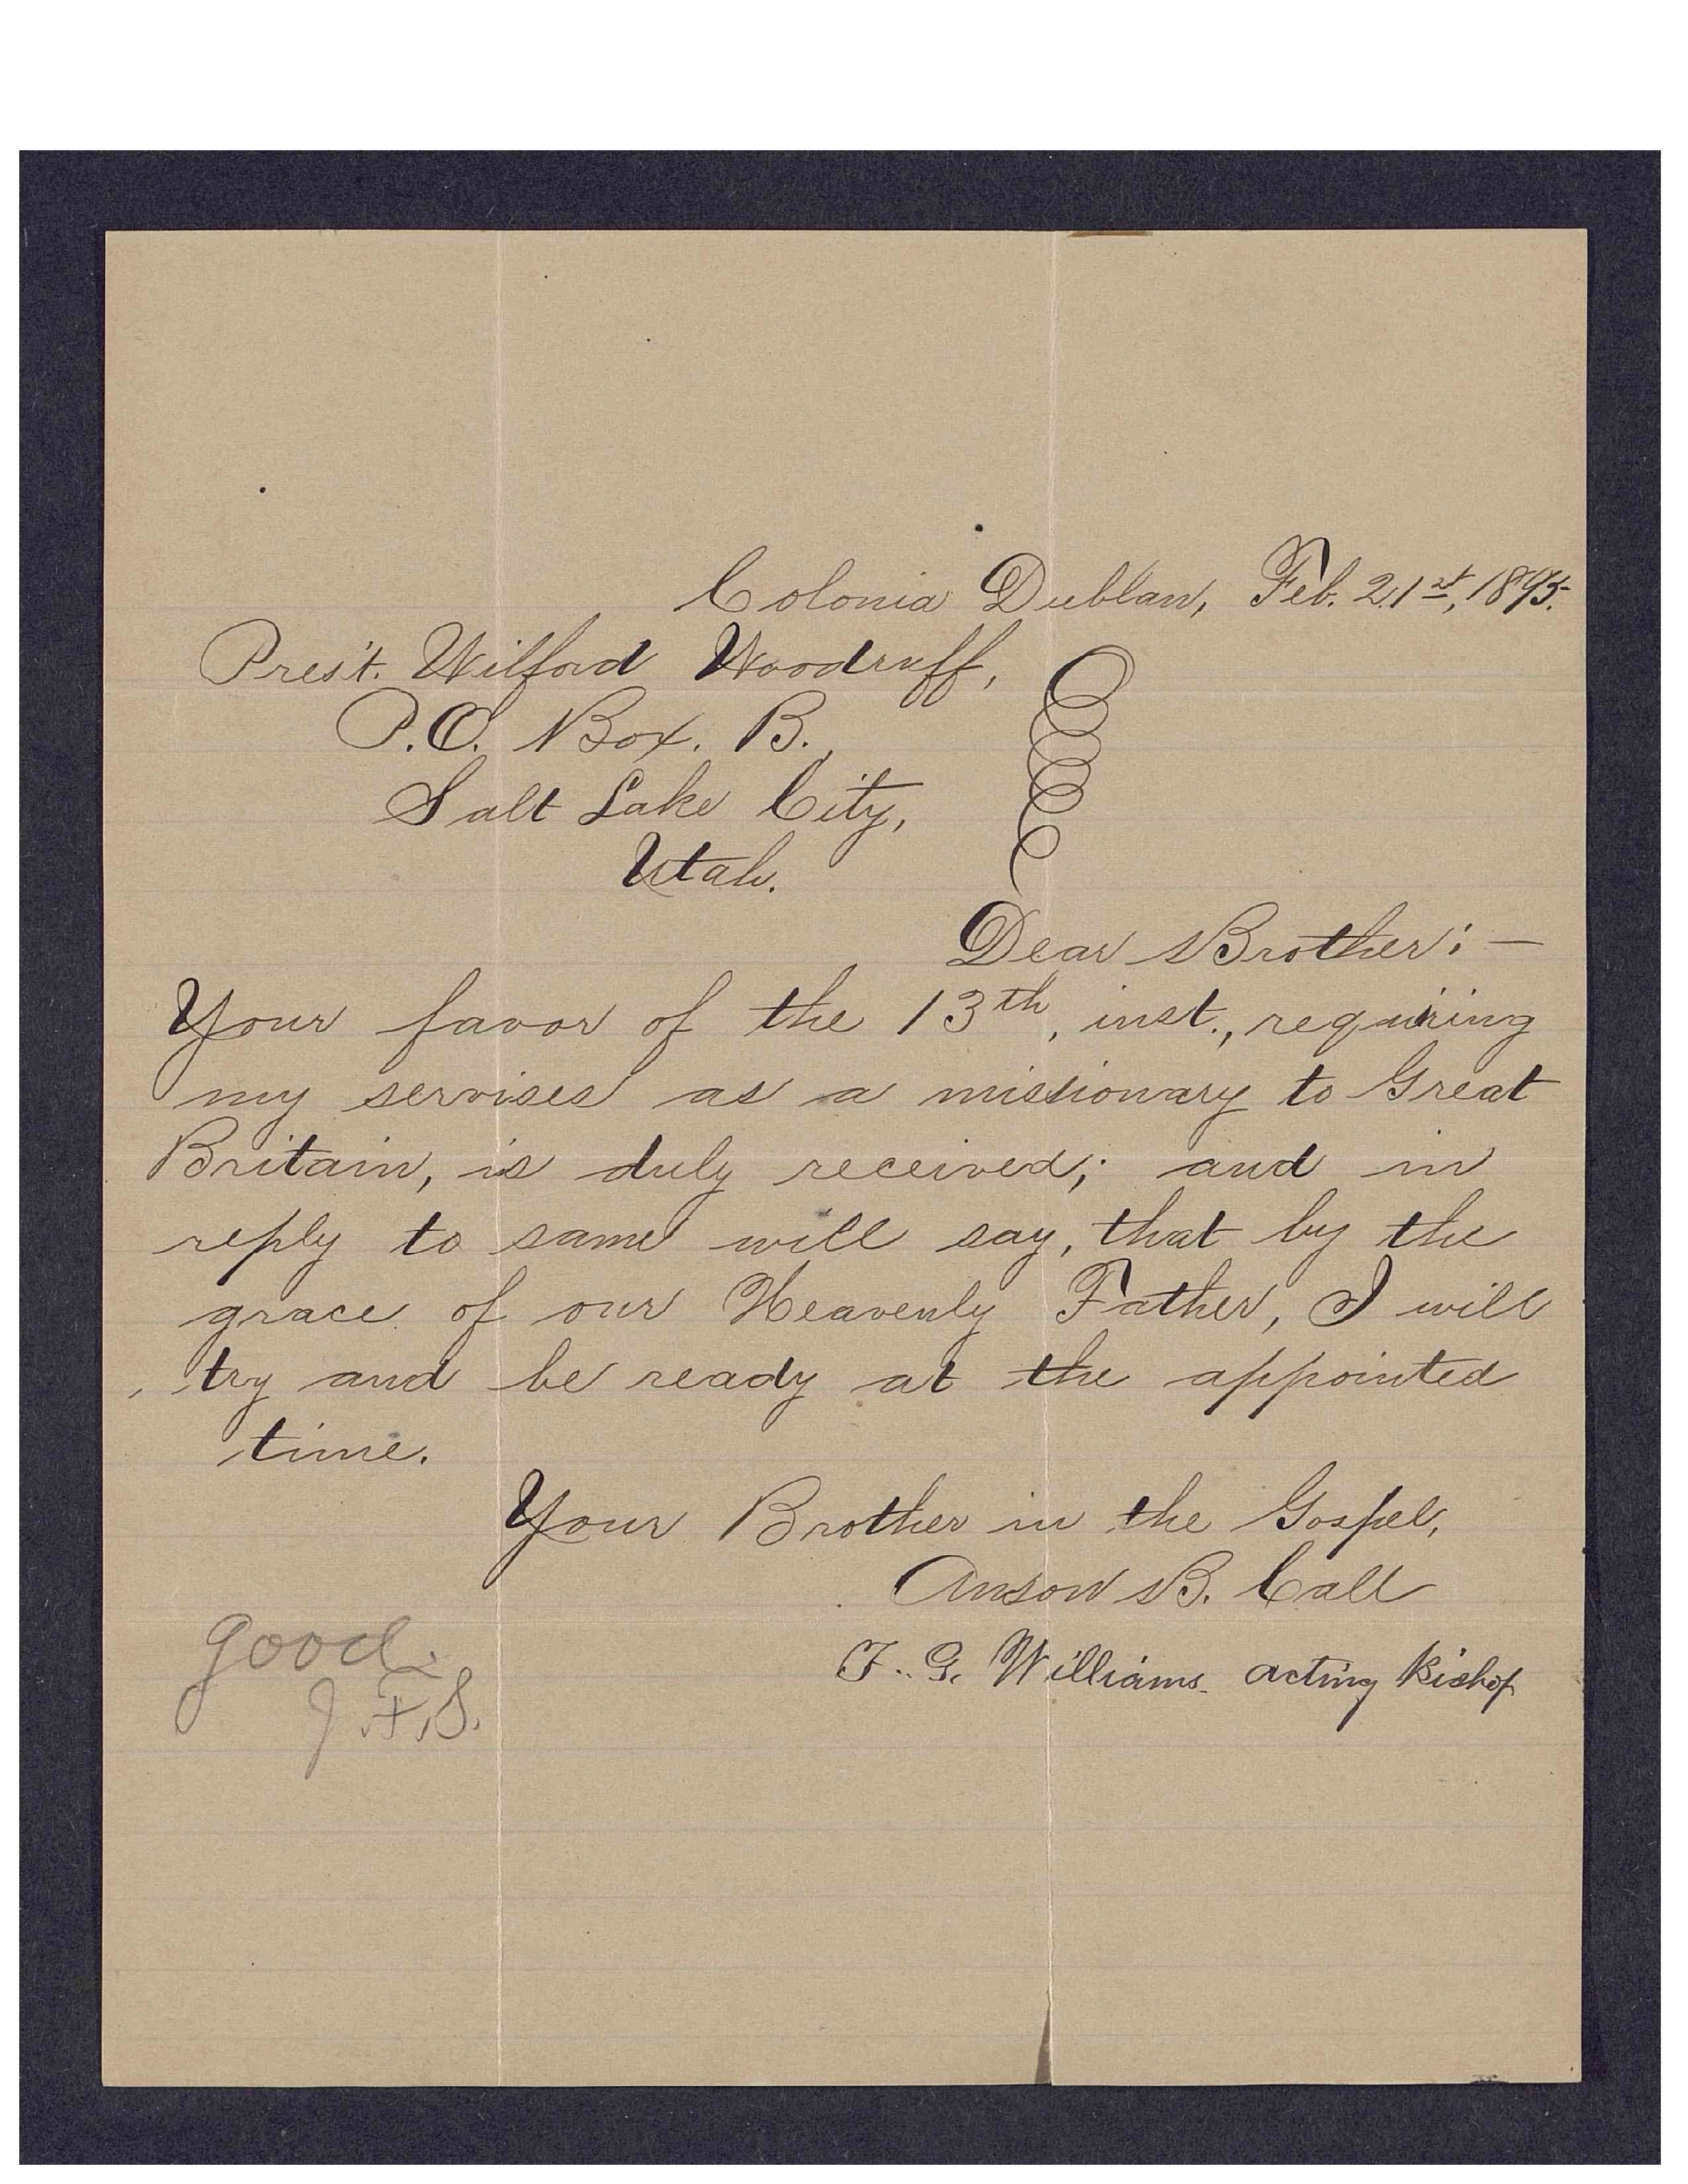 Colonia Dublan, Feb. 21st, 1895.
Pres't. Wilford Woodruff,
P.O. Box. B.,
Salt Lake City,
Utah.
Dear Brother: —
Your favor of the 13th, inst., requiring
my servises as a missionary to Great
Britain, is duly received; and in
reply to same will say, that by the
grace of our Heavenly Father, I will
try and be ready at the appointed
time.
Your Brother in the Gospel,
Anson B. Call
F. G. Williams. acting Bishop
good.
J.F.S.